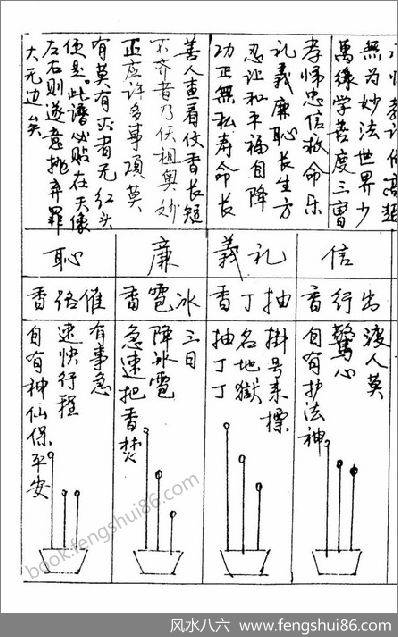 無为妙法世界少
萬緣学善度三曹
孝悌忠信救命乐
礼義廉恥长生方
忍让和平福自降
功正無私寿命长
善人查看仗香长短
不齐者乃仸祖奥妙
正应许多事项莫
有莫有灾者无红头
便是此谱必贴在天像
左右则遂意挑弃罪
大无边矣
信
礼義
廉
恥
出行香
抽丁香
冰雹香
催倍香
渡人莫
驚心
自有护法神
掛号来標
名地獄
抽丁丁
三日
降冰雹
急速把香焚
有事急
速快行程
自有神仙保平安
book.fengshui86.com
风水八六 www.fengshui86.com